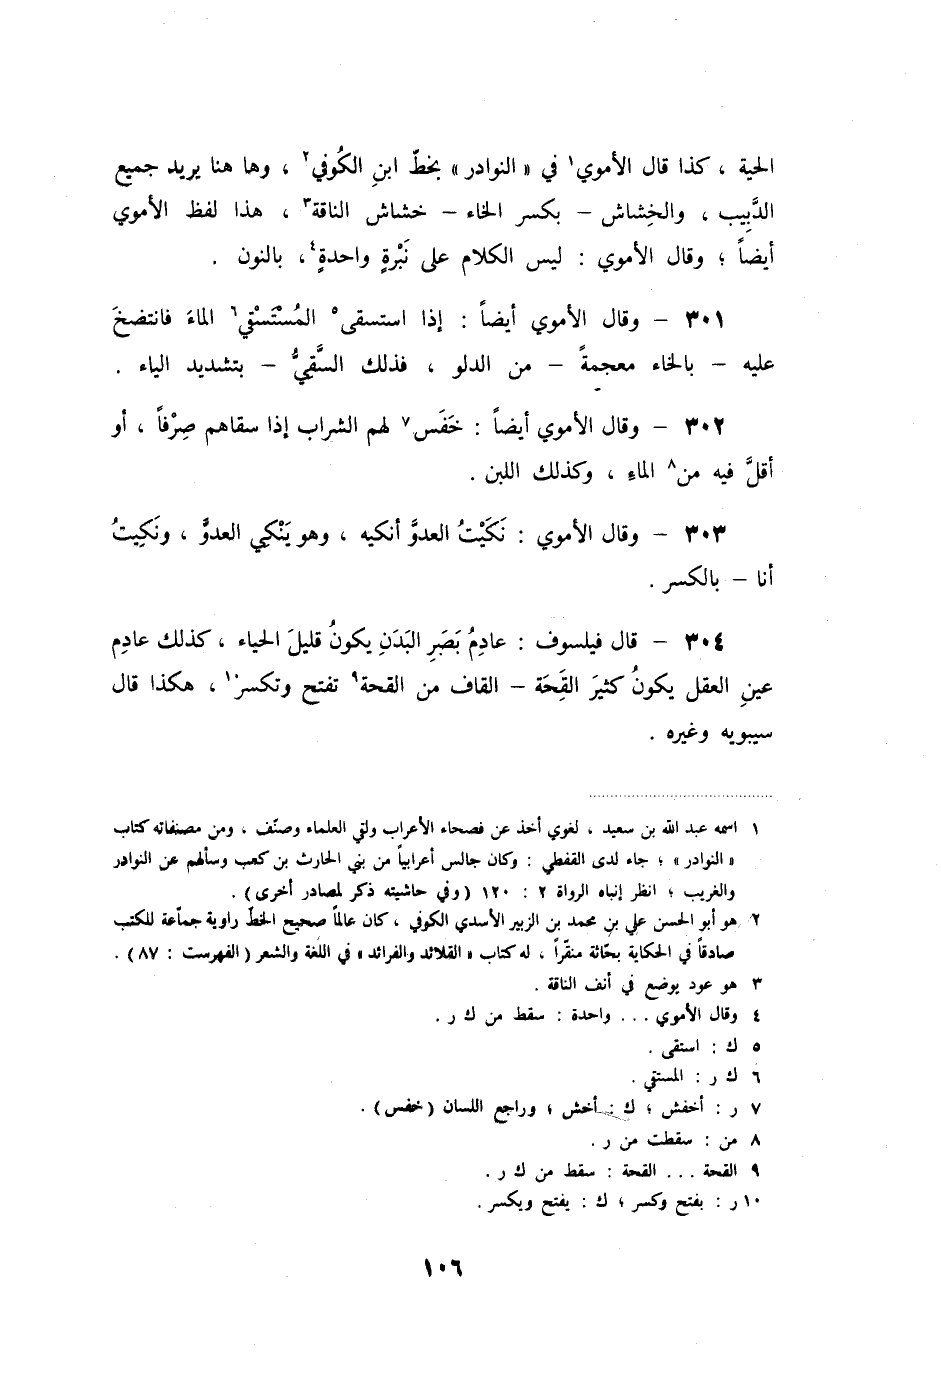 الحية ، كذا قال الأموي١ في « النوادر » بخطّ ابنِ الكُوفي٢ ، وها هنا يريد جميع
الدَّبِيب ، والخِشاش – بكسر الخاء – خشاش الناقة٣ ، هذا لفظ الأموي
أيضاً ؛ وقال الأموي : ليس الكلام على نَبْرةٍ واحدةٍ٤، بالنون .
٣٠١ – وقال الأموي أيضاً : إذا استسقى٥ المُسْتَسْقِي٦ الماءَ فانتضخَ
عليه – بالخاء معجمةً – من الدلو ، فذلك السَّقِيُّ – بتشديد الياء .
٣٠٢ – وقال الأموي أيضاً : خَفَس٧ لهم الشراب إذا سقاهم صِرْفاً ، أو
أقلَّ فيه من٨ الماءِ ، وكذلك اللبن .
٣٠٣ – وقال الأموي : نَكَيْتُ العدوَّ أنكيه ، وهو يَنْكِي العدوَّ ، ونَكِيتُ
أنا – بالكسر .
٣٠٤ – قال فيلسوف : عادِمُ بَصَرِ البَدَنِ يكونُ قليلَ الحياء ، كذلك عادِم
عينِ العقل يكونُ كثيرَ القَِحَة – القاف من القحة٩ تفتح وتكسر١٠ ، هكذا قال
سيبويه وغيره .
١ اسمه عبد الله بن سعيد ، لغوي أخذ عن فصحاء الأعراب ولقي العلماء وصنّف ، ومن مصنفاته كتاب
« النوادر » ؛ جاء لدى القفطي : وكان جالس أعرابياً من بني الحارث بن كعب وسألهم عن النوادر
والغريب ؛ انظر إنباه الرواة ٢ : ١٢٠ (وفي حاشيته ذكر لمصادر أخرى) .
٢ هو أبو الحسن علي بن محمد بن الزبير الأسدي الكوفي ، كان عالماً صحيح الخطّ راوية جمّاعة للكتب
صادقاً في الحكاية بحّاثة منقّراً ، له كتاب « القلائد والفرائد » في اللغة والشعر (الفهرست : ٨٧) .
٣ هو عود يوضع في أنف الناقة .
٤ وقال الأموي ... واحدة : سقط من ك ر .
٥ ك : استقى .
٦ ك ر : المستقي .
٧ ر : أخفش ؛ ك : أخش ؛ وراجع اللسان (خفس) .
٨ من : سقطت من ر .
٩ القحة ... القحة : سقط من ك ر .
١٠ ر : بفتح وكسر ؛ ك : يفتح ويكسر .
١٠٦